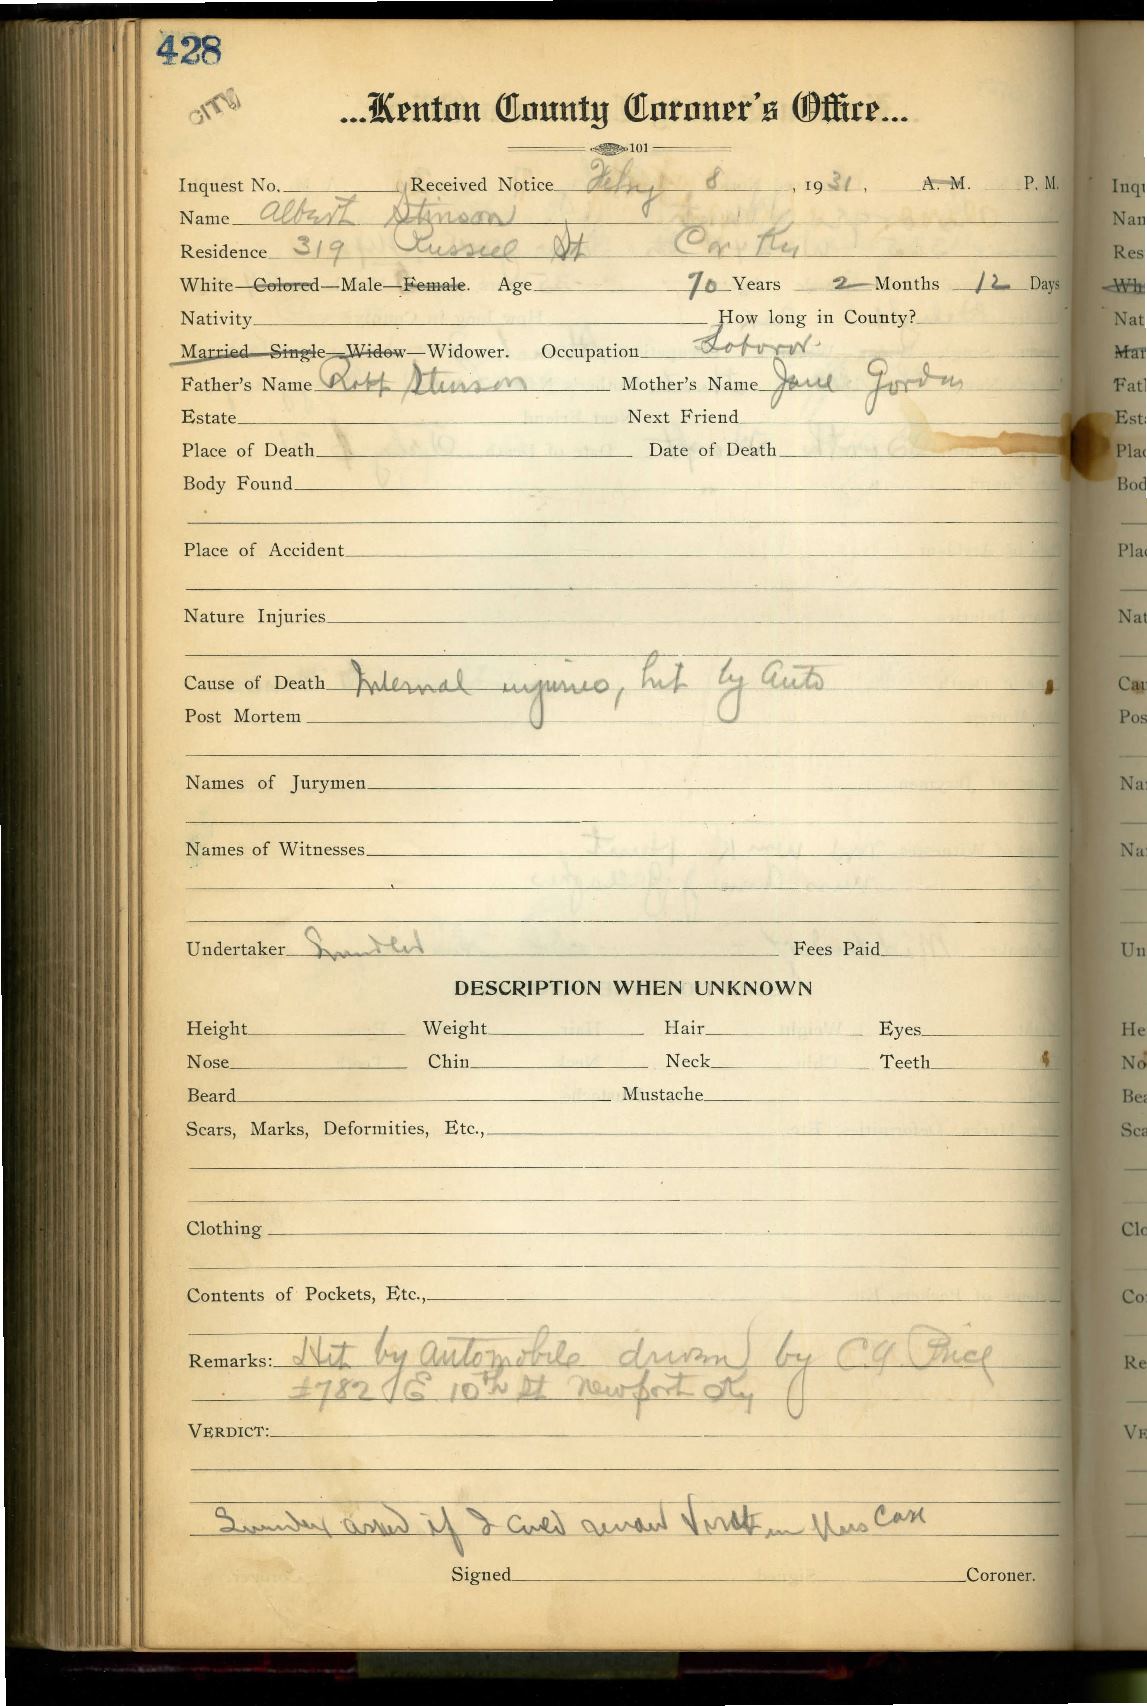 428
CITY
...Kenton County Coroner's Office...
101
Inquest No. Received Notice Feby 8, 1931, A. M. P. M.
Name Albert Stinson
Residence 319 Russell St Cov Ky
White—Colored—Male—Female. Age 70 Years 2 Months 12 Days
Nativity How long in County?
Married—Single—Widow—Widower. Occupation Laborer
Father's Name Robt Stinson Mother's Name Jane Gordon
Estate Next Friend
Place of Death Date of Death
Body Found
Place of Accident
Nature Injuries
Cause of Death Internal injuries, hit by Auto
Post Mortem
Names of Jurymen
Names of Witnesses
Undertaker Fees Paid
DESCRIPTION WHEN UNKNOWN
Height Weight Hair Eyes
Nose Chin Neck Teeth
Beard Mustache
Scars, Marks, Deformities, Etc.,
Clothing
Contents of Pockets, Etc.,
Remarks: Hit by Automobile driven by C G Price
#782 E 10th St Newport Ky
VERDICT:
asked if I could render Verdict in this Case
Signed Coroner.
Inqu
Nam
Res
Wh
Nat
Mar
Fatl
Esta
Plac
Bod
Plac
Nat
Cau
Pos
Na
Na
Un
He
No
Bea
Sca
Clo
Co
Re
VE